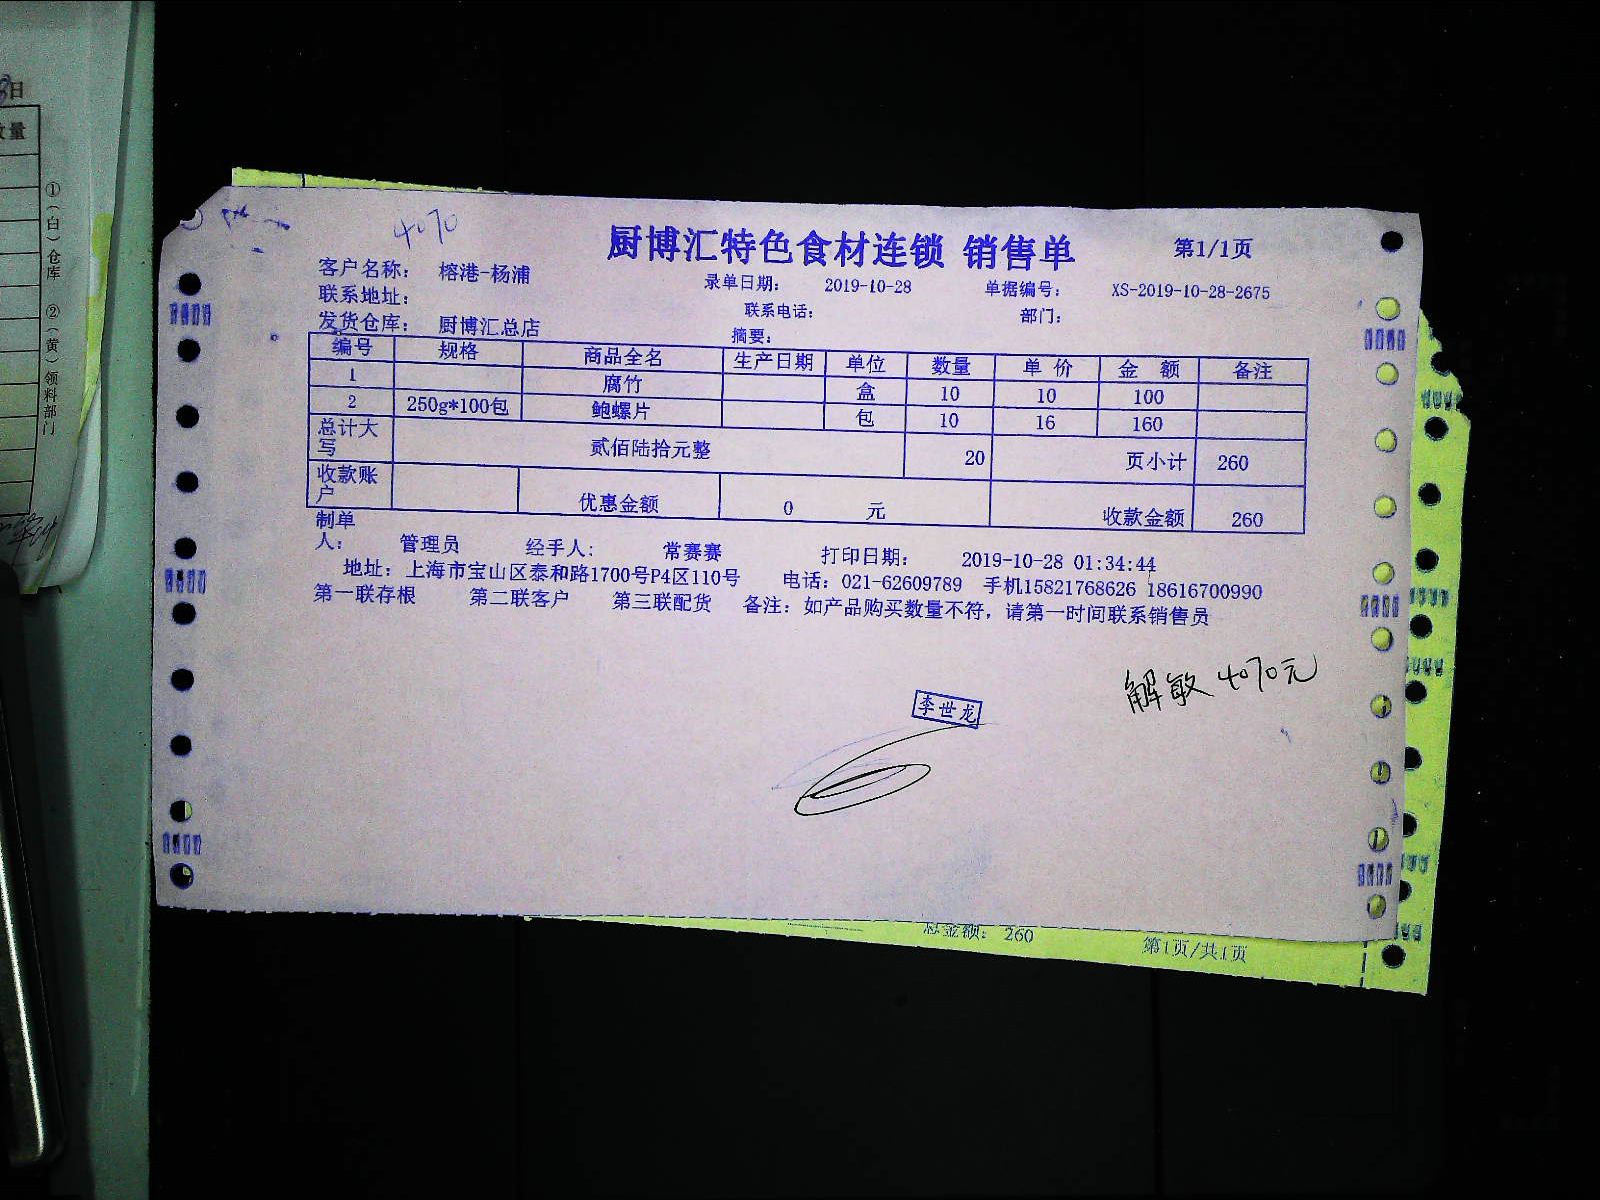 日
数量
①(白)仓库 ②(黄)领料部门
4070
厨博汇特色食材连锁 销售单 第1/1页
客户名称: 榕港-杨浦 录单日期: 2019-10-28 单据编号: XS-2019-10-28-2675
联系地址: 联系电话: 部门:
发货仓库: 厨博汇总店 摘要:
编号 规格 商品全名 生产日期 单位 数量 单价 金额 备注
1 腐竹 盒 10 10 100
2 250g*100包 鲍螺片 包 10 16 160
总计大写 贰佰陆拾元整 20 页小计 260
收款账户 优惠金额 0 元 收款金额 260
制单人: 管理员 经手人: 常赛赛 打印日期: 2019-10-28 01:34:44
地址: 上海市宝山区泰和路1700号P4区110号 电话: 021-62609789 手机15821768626 18616700990
第一联存根 第二联客户 第三联配货 备注: 如产品购买数量不符, 请第一时间联系销售员
解敏 4070元
李世龙
总金额: 260
第1页/共1页